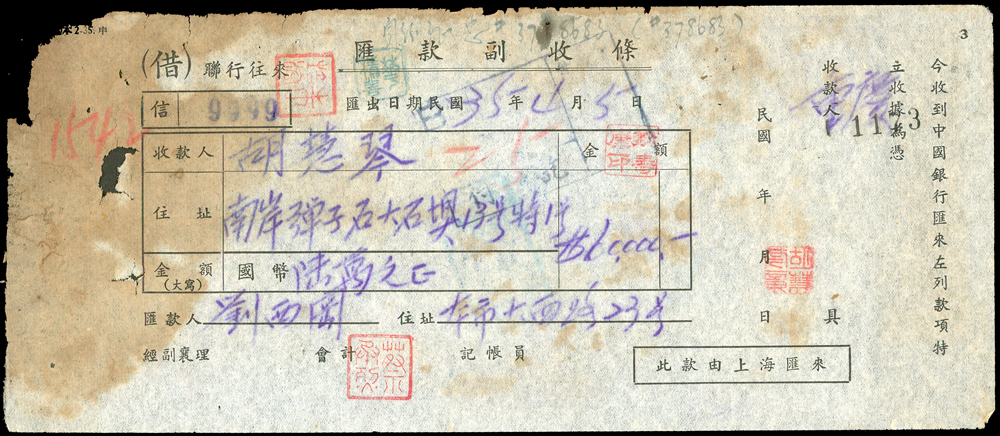 本2-35.申
3
匯款副收條
(借) 聯行往來
信 9999
匯出日期民國 35 年 4 月 5 日
收款人 胡慧琴
金額
住址 南岸彈子石大石
$60,000.-
金額(大寫) 國幣 陸萬元正
匯款人 劉西園 住址 本市大西路23号
經副襄理 會計 記帳員
此款由上海匯來
今收到中國銀行匯來左列款項特
立收據為憑
收款人
1113
民國 年 月 日 具